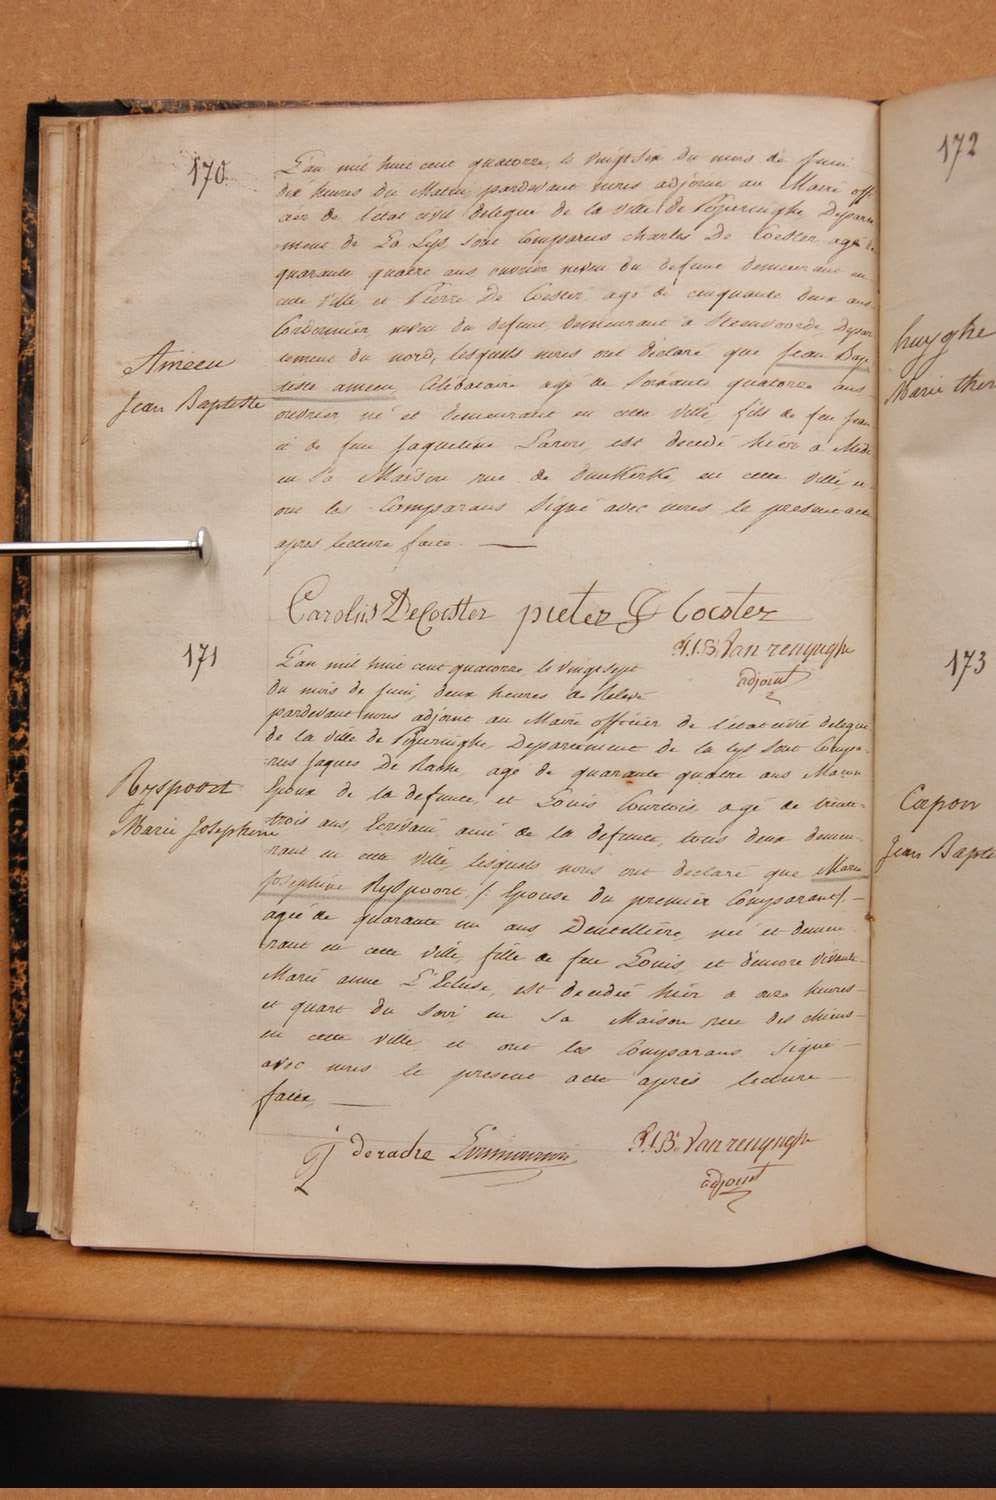 170
L'an mil huit cent quatorze, le vingt six du mois de juin
dix heures du Matin, pardevant nous adjoint au Maire offi-
cier de l'état civil delegué de la ville de Departe
ment de La Lys sont comparus charles De Coester agé de
quarante quatre ans ouvrier neveu du defunt demeurant en
cette ville et Pierre De Coester agé de cinquante deux ans
Cordonnier neveu du defunt, demeurant à Steenvoorde, Depar
tement du nord, lesquels nous ont déclaré que Jean Bap
tiste ameeu, Célibataire agé de soixante quatorze ans
ouvrier né et demeurant en cette ville, fils de feu Jean
et de feue Jaqueline est decedé hier à Midi
en sa Maison rue de Dunkerke, en cette ville, et
ont les Comparans signé avec nous le present acte
après lecture faite.
Ameeu
Jean Baptiste
Carolus DeCoester pieter D Coester
P.J.B. Van renynghe
adjoint
171
L'an mil huit cent quatorze, le vingt sept
du mois de juin, deux heures de Relevé
pardevant nous adjoint au Maire officier de l'état civil delegué
de la ville de Departement de la Lys sont Compa-
rus Jaques De Rache, agé de quarante quatre ans Macon
Epoux de la defunte, et Louis Courtois, agé de trente-
trois ans, Ecrivain, ami de la defunte, tous deux demeu-
rant en cette ville, lesquels nous ont declaré que Marie
Josephine Ryspoort, /: Epouse du premier Comparant/. —
agée de quarante un ans, Dentellière, née et demeu
rant en cette ville, fille de feu Louis, et d'encore vivante
Marie anne L'Ecluse, est decedée hier à onze heures-
et quart du soir en sa Maison rue des chiens-
en cette ville et ont les Comparans signé -
avec nous le present acte après lecture —
faite,
Ryspoort
Marie Josephine
j derache
P.J.B. Van renynghe
adjoint
172
huyghe
Marie ther
173
Capon
Jean Bapti